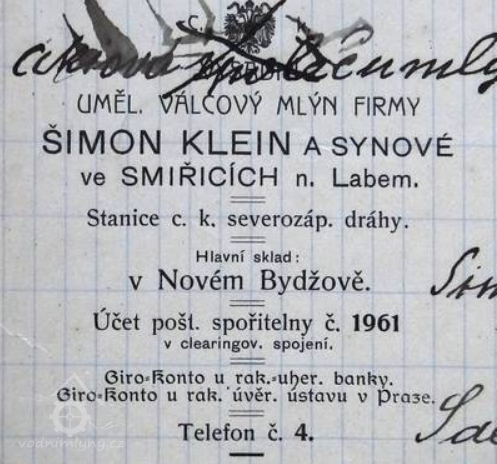 C. K.
akciová společ. uml
UMĚL. VÁLCOVÝ MLÝN FIRMY
ŠIMON KLEIN A SYNOVÉ
ve SMIŘICÍCH n. Labem.
Stanice c. k. severozáp. dráhy.
Hlavní sklad:
v Novém Bydžově.
Účet pošt. spořitelny č. 1961
v clearingov. spojení.
Giro-Konto u rak.-uher. banky.
Giro-Konto u rak. úvěr. ústavu v Praze.
Telefon č. 4.
vodnimlyny.cz